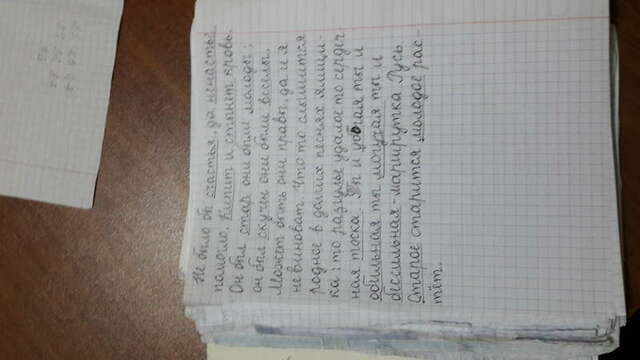 Не было бы счастья, да ненастье
помогло. Кипит и стынет кровь.
Он был стар они были молоды;
он был скучен они были веселы.
Может быть они правы, да и я
не виноват. Что то слышится
родное в долгих песнях ямщи-
ка: то разгулье удалое то сердеч
ная тоска. Ты и убогая ты и
обильная ты могучая ты и
бессильная - маршрутка Русь
Старое старится молодое рас-
тёт.